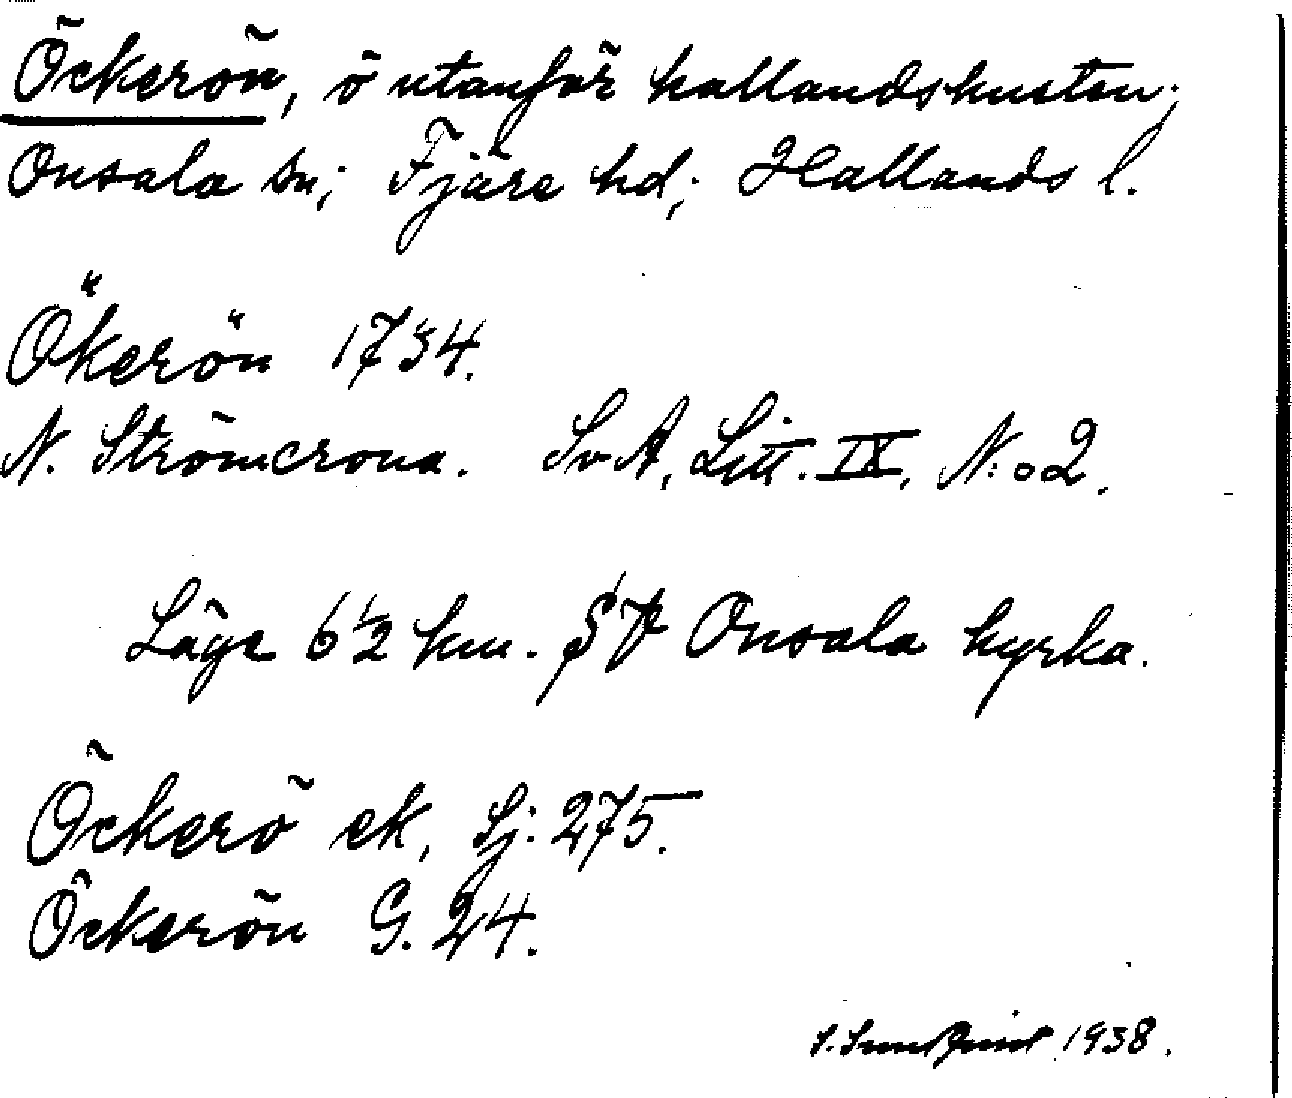 Öckerön, ö utanför hallandskusten;
Onsala sn; Fjäre hd; Hallands l.
Ökerön 1734.
N. Strömcrona. SvA, Litt. IX, N:o 2.
Läge 6 1/2 km. SV Onsala kyrka.
Öckerö ek, Sj: 275.
Öckerön G. 24.
S. Sundqvist 1938.